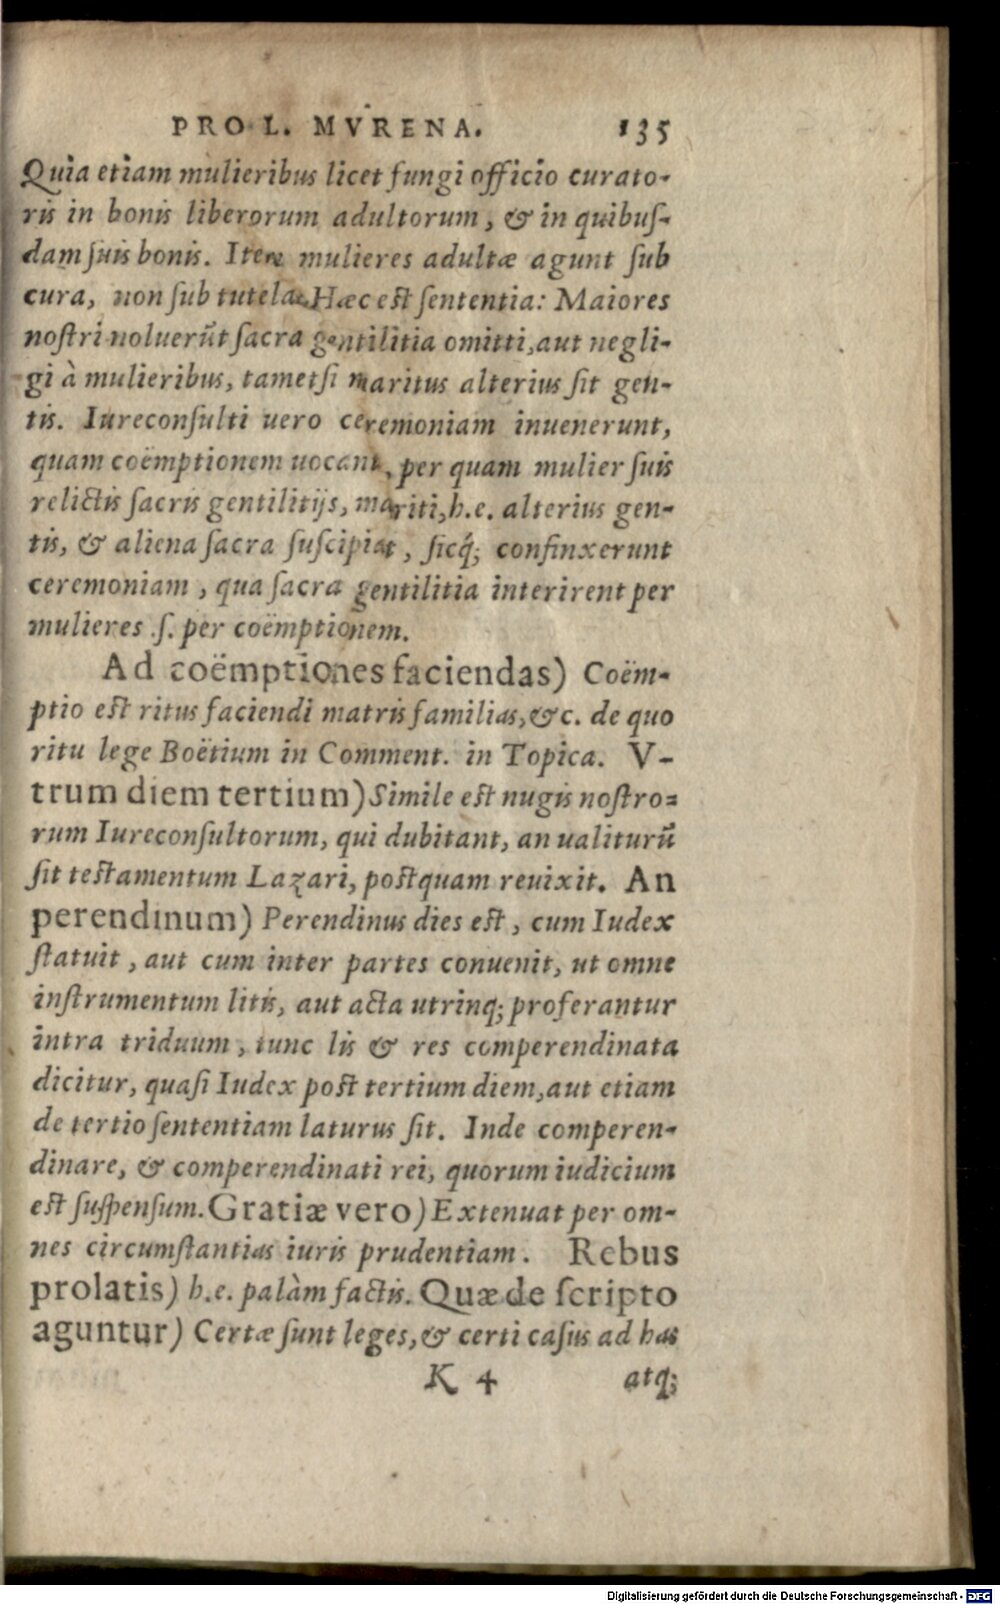 PRO L. MVRENA. 135
Quia etiam mulieribus licet fungi officio curato-
ris in bonis liberorum adultorum, & in quibuſ-
dam ſuis bonis. Item mulieres adultæ agunt ſub
cura, non ſub tutela. Hæc eſt ſententia: Maiores
noſtri noluerũt ſacra gentilitia omitti, aut negli-
gi à mulieribus, tametſi maritus alterius ſit gen-
tis. Iureconſulti uero ceremoniam inuenerunt,
quam coëmptionem uocant, per quam mulier ſuis
relictis ſacris gentilitijs, mariti, h.e. alterius gen-
tis, & aliena ſacra ſuſcipiat, ſicq́; confinxerunt
ceremoniam, qua ſacra gentilitia interirent per
mulieres .ſ. per coëmptionem.
Ad coëmptiones faciendas) Coëm-
ptio eſt ritus faciendi matris familias, &c. de quo
ritu lege Boëtium in Comment. in Topica. V-
trum diem tertium) Simile eſt nugis noſtro-
rum Iureconſultorum, qui dubitant, an ualiturũ
ſit teſtamentum Lazari, poſtquam reuixit. An
perendinum) Perendinus dies eſt, cum Iudex
ſtatuit, aut cum inter partes conuenit, ut omne
inſtrumentum litis, aut acta utrinq; proferantur
intra triduum, tunc lis & res comperendinata
dicitur, quaſi Iudex poſt tertium diem, aut etiam
de tertio ſententiam laturus ſit. Inde comperen-
dinare, & comperendinati rei, quorum iudicium
eſt ſuſpenſum. Gratiæ vero) Extenuat per om-
nes circumſtantias iuris prudentiam. Rebus
prolatis) h.e. palàm factis. Quæ de ſcripto
aguntur) Certæ ſunt leges, & certi caſus ad has
K 4 atq;
Digitalisierung gefördert durch die Deutsche Forschungsgemeinschaft - DFG